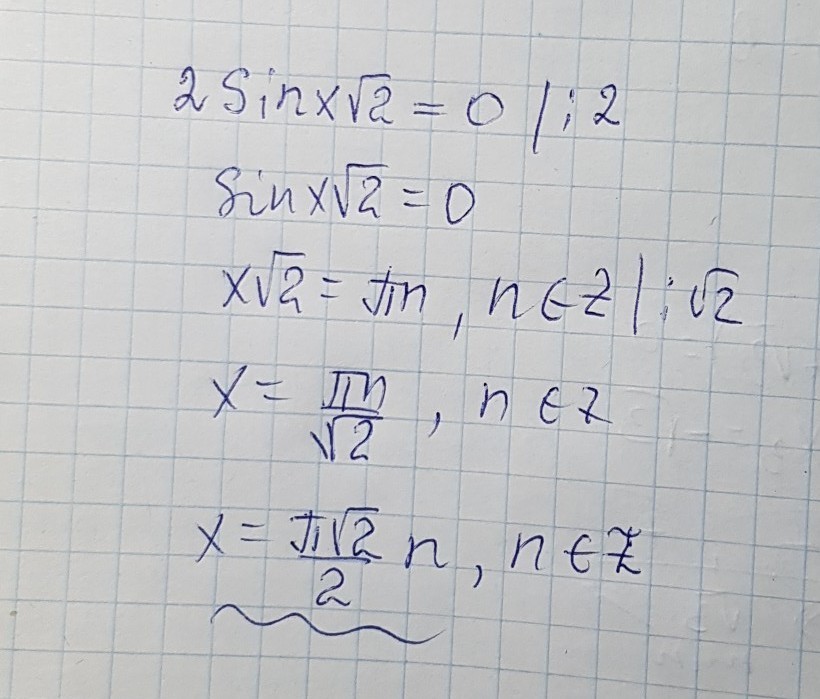 2 Sinx√2 = 0 |:2
Sinx√2 = 0
x√2 = πn, n∈Z |:√2
x = πn/√2, n∈Z
x = π√2/2 n, n∈Z